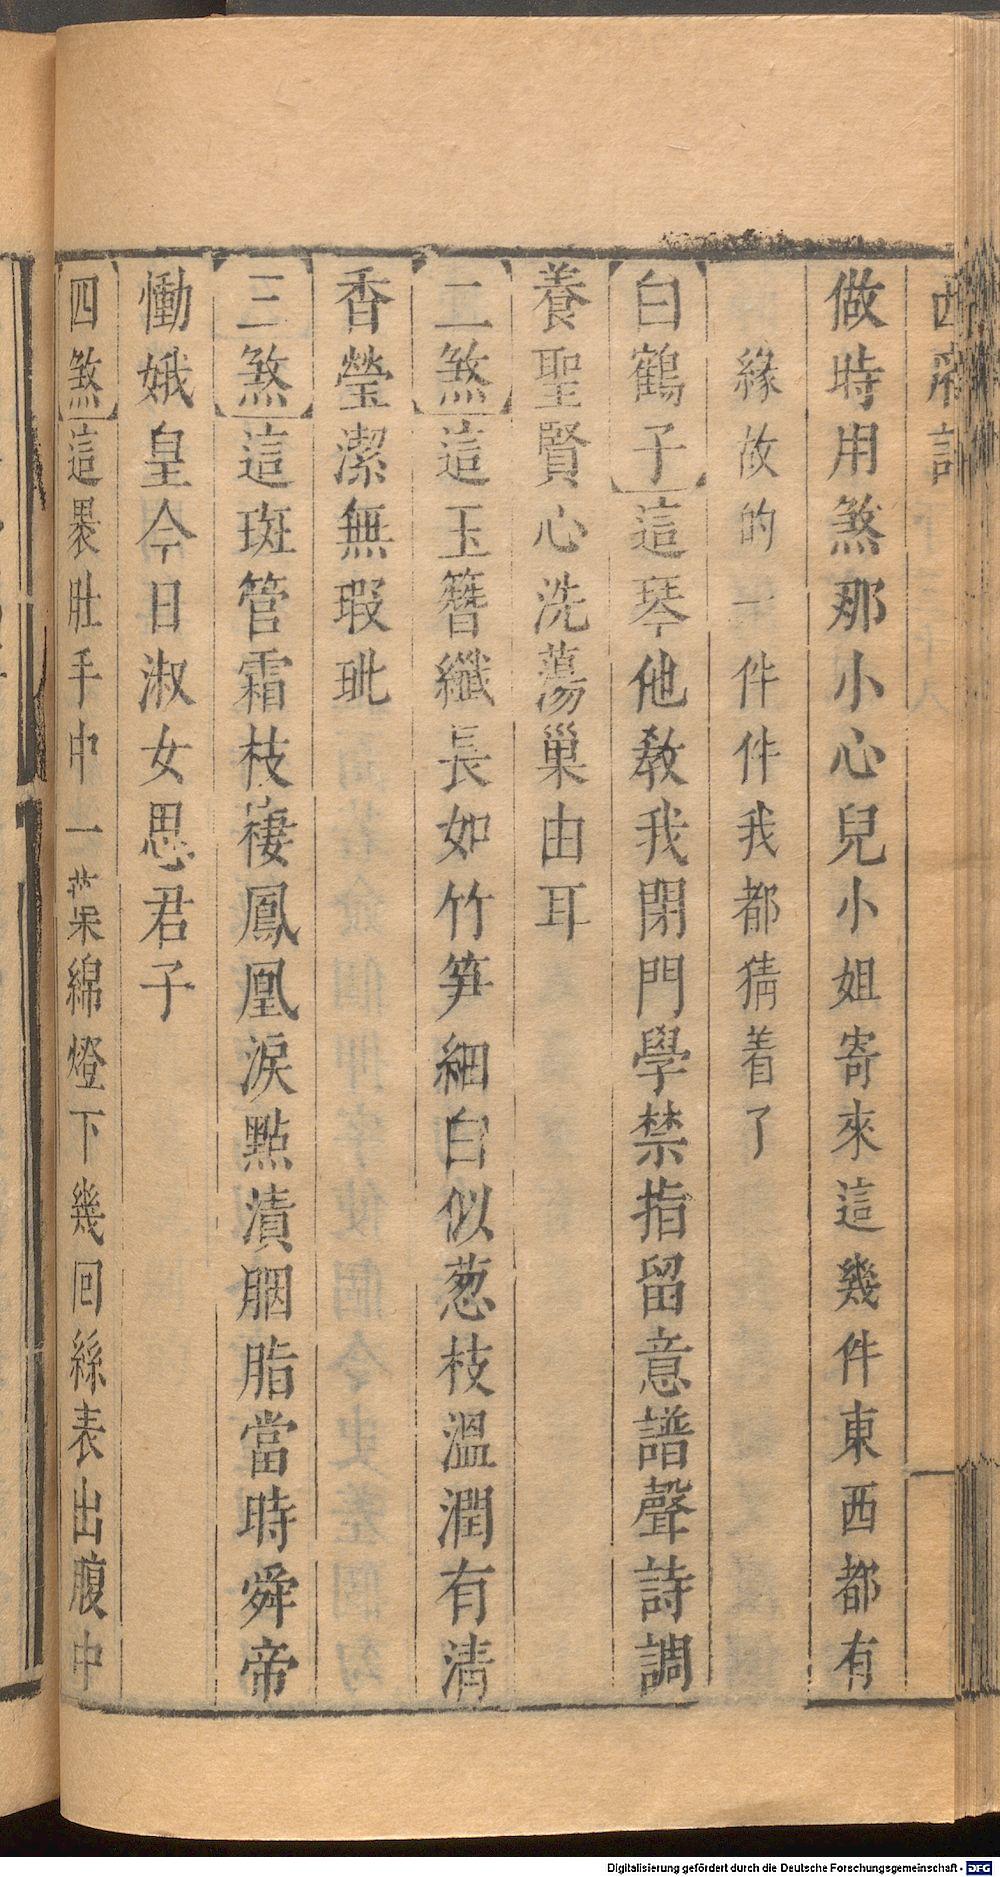 西廂記
做時用煞那小心兒小姐寄來這幾件東西都有
緣故的一件件我都猜着了
白鶴子這琴他教我閉門學禁指留意譜聲詩調
養聖賢心洗蕩巢由耳
二煞這玉簪纖長如竹笋細白似葱枝溫潤有清
香瑩潔無瑕玼
三煞這斑管霜枝棲鳳凰淚點漬胭脂當時舜帝
慟娥皇今日淑女思君子
四煞這裹肚手中一葉綿燈下幾回絲表出腹中
Digitalisierung gefördert durch die Deutsche Forschungsgemeinschaft - DFG